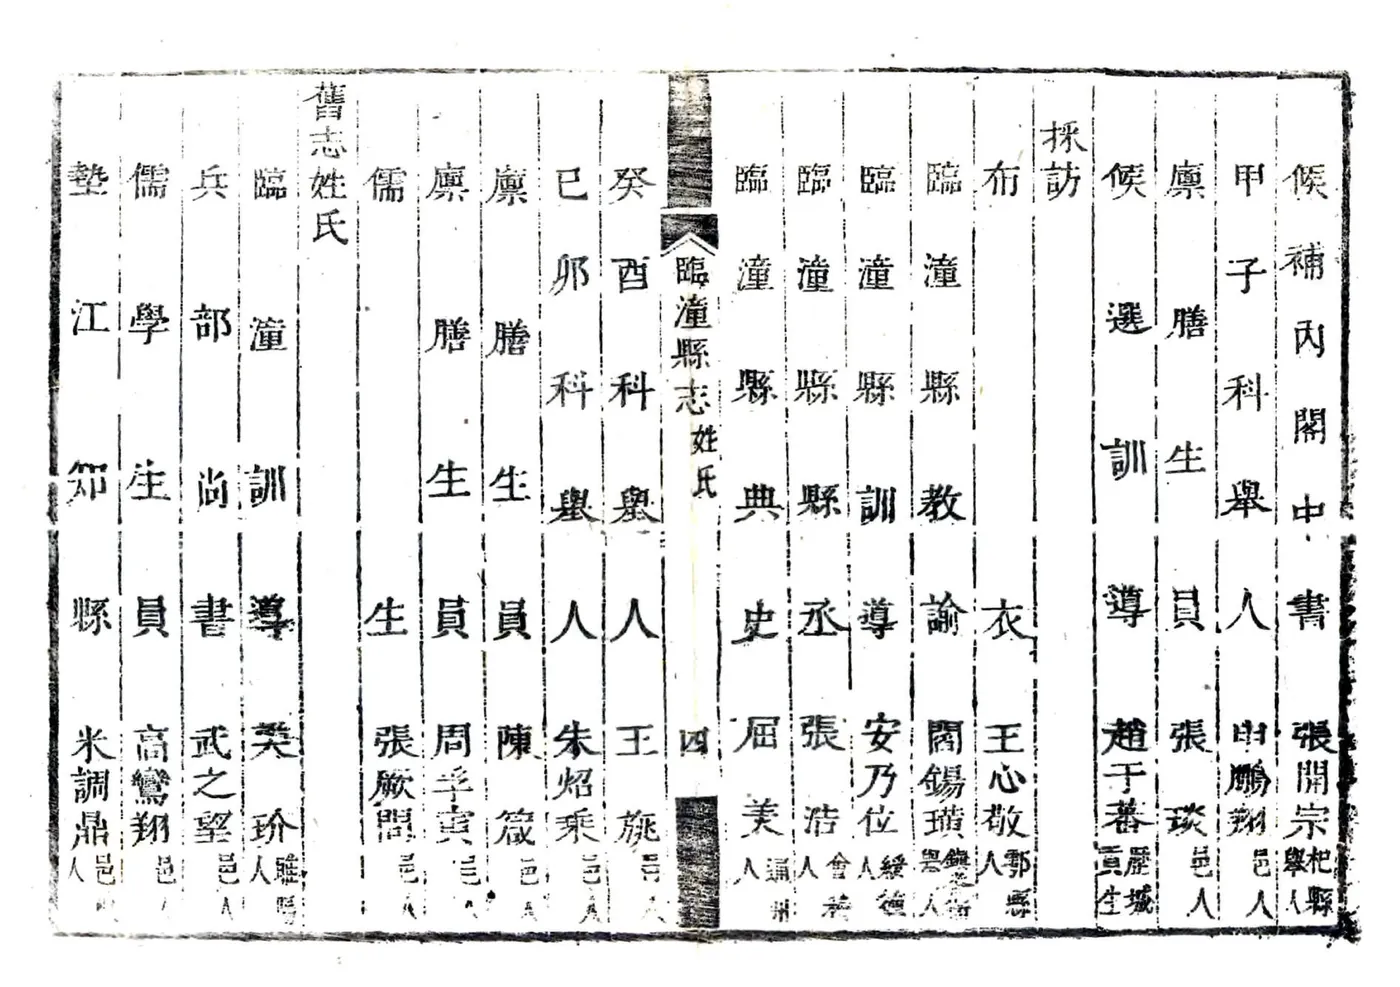 候補內閣中書張開宗杞縣舉人
甲子科舉人申鵬翔邑人
廪膳生員張琰邑人
候選訓導趙于蕃歷城貢生
採訪
布衣王心敬鄠縣人
臨潼縣教諭閻錫璜鎮人
臨潼縣訓導安乃位綏德人
臨潼縣縣丞張浩會人
臨潼縣典史屈美通州人
臨潼縣志姓氏四
癸酉科舉人王旒邑人
己卯科舉人朱炤乘邑人
廪膳生員陳箴邑人
廪膳生員周孚寅邑人
儒生張厥問邑人
舊志姓氏
臨潼訓導美玠雎人
兵部尚書武之望邑人
儒學生員高鸞翔邑人
墊江知縣米調鼎邑人